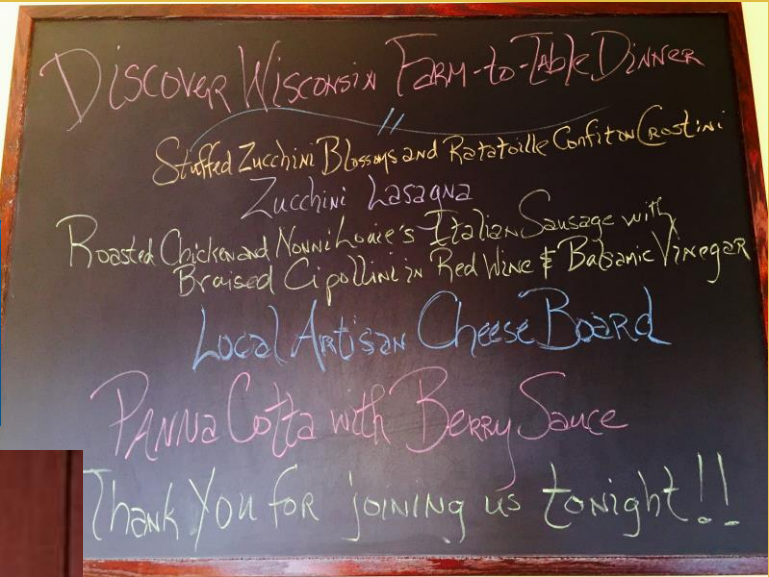 Discover Wisconsin Farm-to-Table Dinner
Stuffed Zucchini Blossoms and Ratatoille Confit on Crostini
Zucchini Lasagna
Roasted Chicken and Nonni Louie's Italian Sausage with
Braised Cipollini in Red Wine & Balsamic Vinegar
Local Artisan Cheese Board
Panna Cotta with Berry Sauce
Thank You for joining us tonight!!